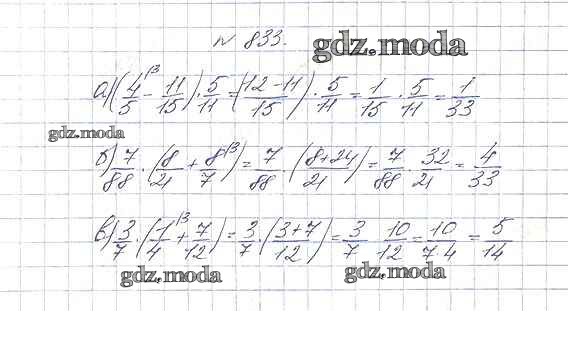 № 833.
gdz.moda
а) (4/5^(3 - 11/15) · 5/11 = (12-11/15) · 5/11 = 1/15 · 5/11 = 1/33
gdz.moda
б) 7/88 · (8/21 + 8/7^(3) = 7/88 · (8+24/21) = 7/88 · 32/21 = 4/33
в) 3/7 · (1/4^(3 + 7/12) = 3/7 · (3+7/12) = 3/7 10/12 = 10/7·4 = 5/14
gdz.moda gdz.moda